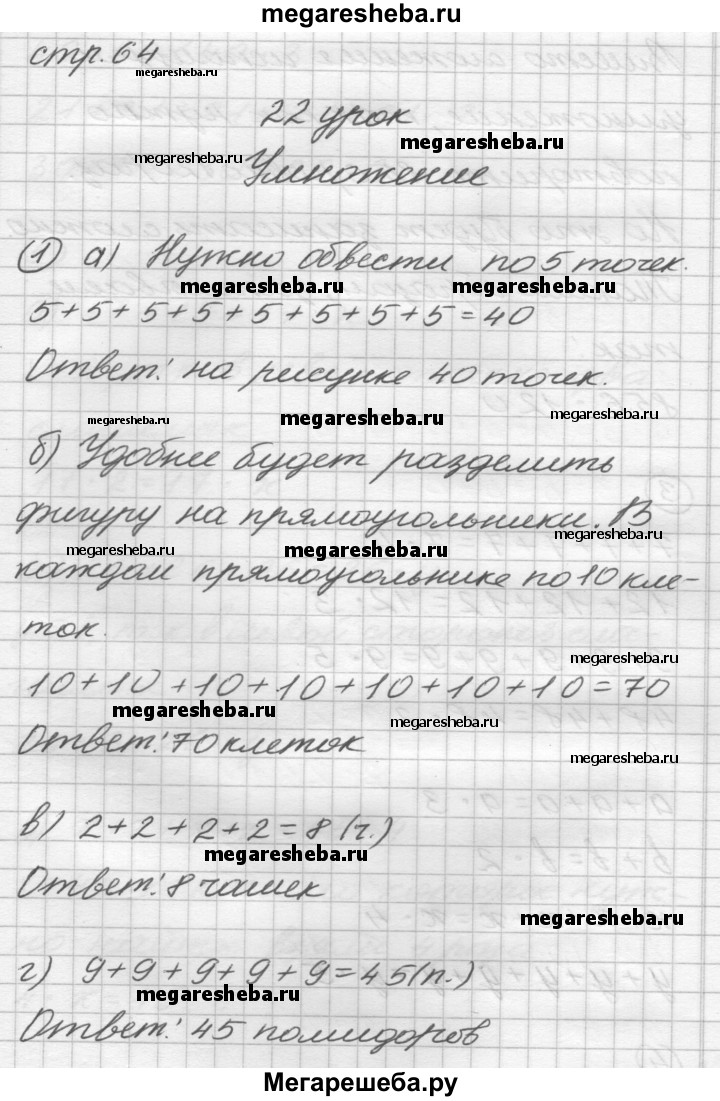 megaresheba.ru
стр. 64
megaresheba.ru
22 урок
megaresheba.ru
megaresheba.ru
Умножение
① а) Нужно обвести по 5 точек.
megaresheba.ru megaresheba.ru
5+5+5+5+5+5+5+5=40
Ответ: на рисунке 40 точек.
megaresheba.ru megaresheba.ru megaresheba.ru
б) Удобнее будет разделить
фигуру на прямоугольники. В
megaresheba.ru
megaresheba.ru megaresheba.ru
каждом прямоугольнике по 10 кле-
ток.
megaresheba.ru
10+10+10+10+10+10+10=70
megaresheba.ru megaresheba.ru
Ответ: 70 клеток
megaresheba.ru
в) 2+2+2+2=8 (ч.)
megaresheba.ru
Ответ: 8 чашек
megaresheba.ru
г) 9+9+9+9+9=45(п.)
megaresheba.ru
Ответ: 45 помидоров
Мегарешеба.ру